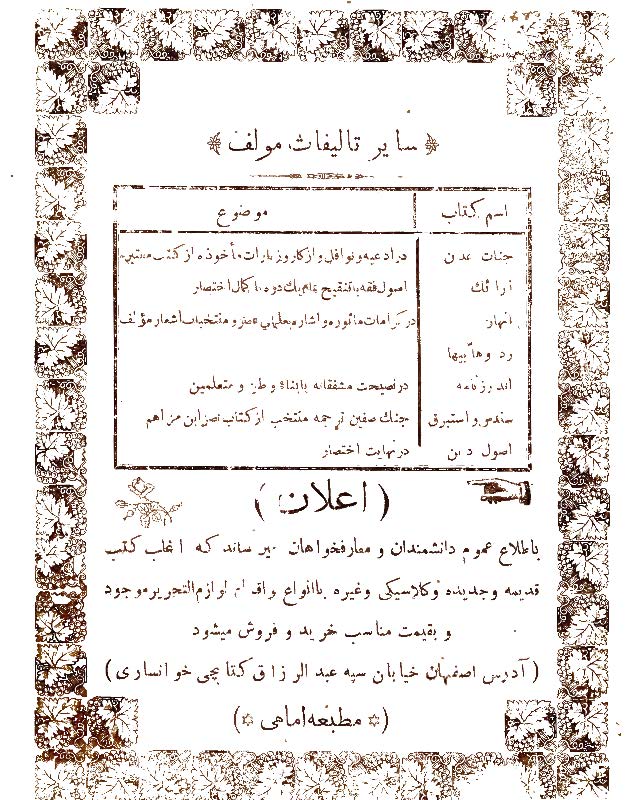 سایر تالیفات مولف
اسم کتاب موضوع
جنات عدن در ادعیه و نوافل و اذکار و زیارات مأخوذه از کتب معتبره
ارائك اصول فقه با تنقیح با کمال اختصار
انهار در کرامات مأثوره و اشعار و منتخبات اشعار مؤلف
رد وهابیها
اندرزنامه در نصیحت مشفقانه بابناء وطن و متعلمین
سندس و استبرق جنك صفین ترجمه منتخب از کتاب نصر ابن مزاهم
اصول دین در نهایت اختصار
( اعلان )
باطلاع عموم دانشمندان و معارفخواهان میرساند که اغلب کتب
قدیمه و جدیده وکلاسیکی وغیره باانواع واقسام لوازم‌التحریر موجود
و بقیمت مناسب خرید و فروش میشود
( آدرس اصفهان خیابان سپه عبد الرزاق کتابچی خوانساری )
( مطبعه امامی )